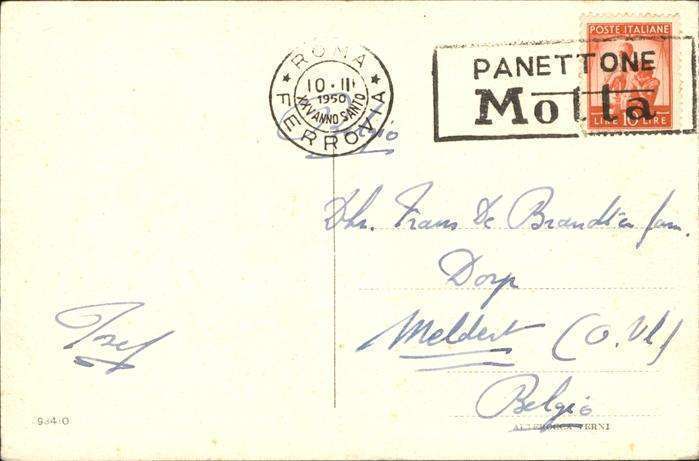 ROMA
10 · II
1950
XXV ANNO SANTO
FERROVIA
PANETTONE
Motta
POSTE ITALIANE
LIRE 10 LIRE
Dhr. Frans De Brandt en fam.
Dorp
Meldert (O. Vl)
Belgio
Jzef
934-0
ALTEROCCA TERNI